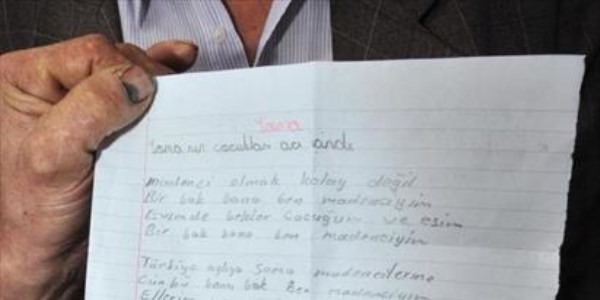 Soma
Soma nın çocukları acı içinde
Madenci olmak kolay değil
Bir bak bana ben madenciyim
Evimde bekler çocuğum ve eşim
Bir bak bana ben madenciyim
Türkiye ağlıyo Soma madencilerine
bana bak Ben madenciyim
Ellerim